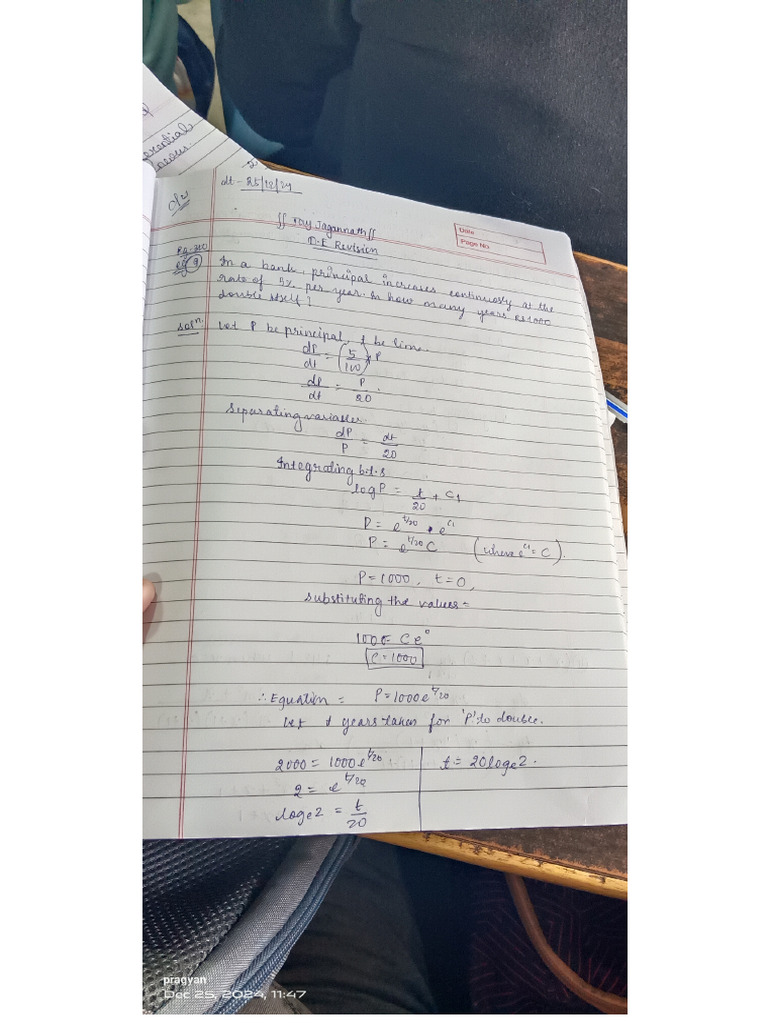 erential
neous.
c/w
dt - 25/12/24
|| Jay Jagannath ||
D.E Revision
Date
Page No
eg 9
In a bank, principal increases continuosly at the
rate of 5% per year. In how many years Rs 1000
double itself?
Solⁿ.
Let P be principal, t be time.
dP/dt = (5/100) × P
dP/dt = P/20.
Separating variables
dP/P = dt/20
Integrating b.t.s
log P = t/20 + C₁
P = e^(t/20) • e^(C₁)
P = e^(t/20) C (where e^(C₁) = C).
P = 1000, t = 0,
substituting the values =
1000 = C e⁰
C = 1000
∴ Equation = P = 1000 e^(t/20)
Let t years taken for 'P' to double.
2000 = 1000 e^(t/20)
2 = e^(t/20)
logₑ2 = t/20
t = 20 logₑ2.
pragyan
Dec 25, 2024, 11:47